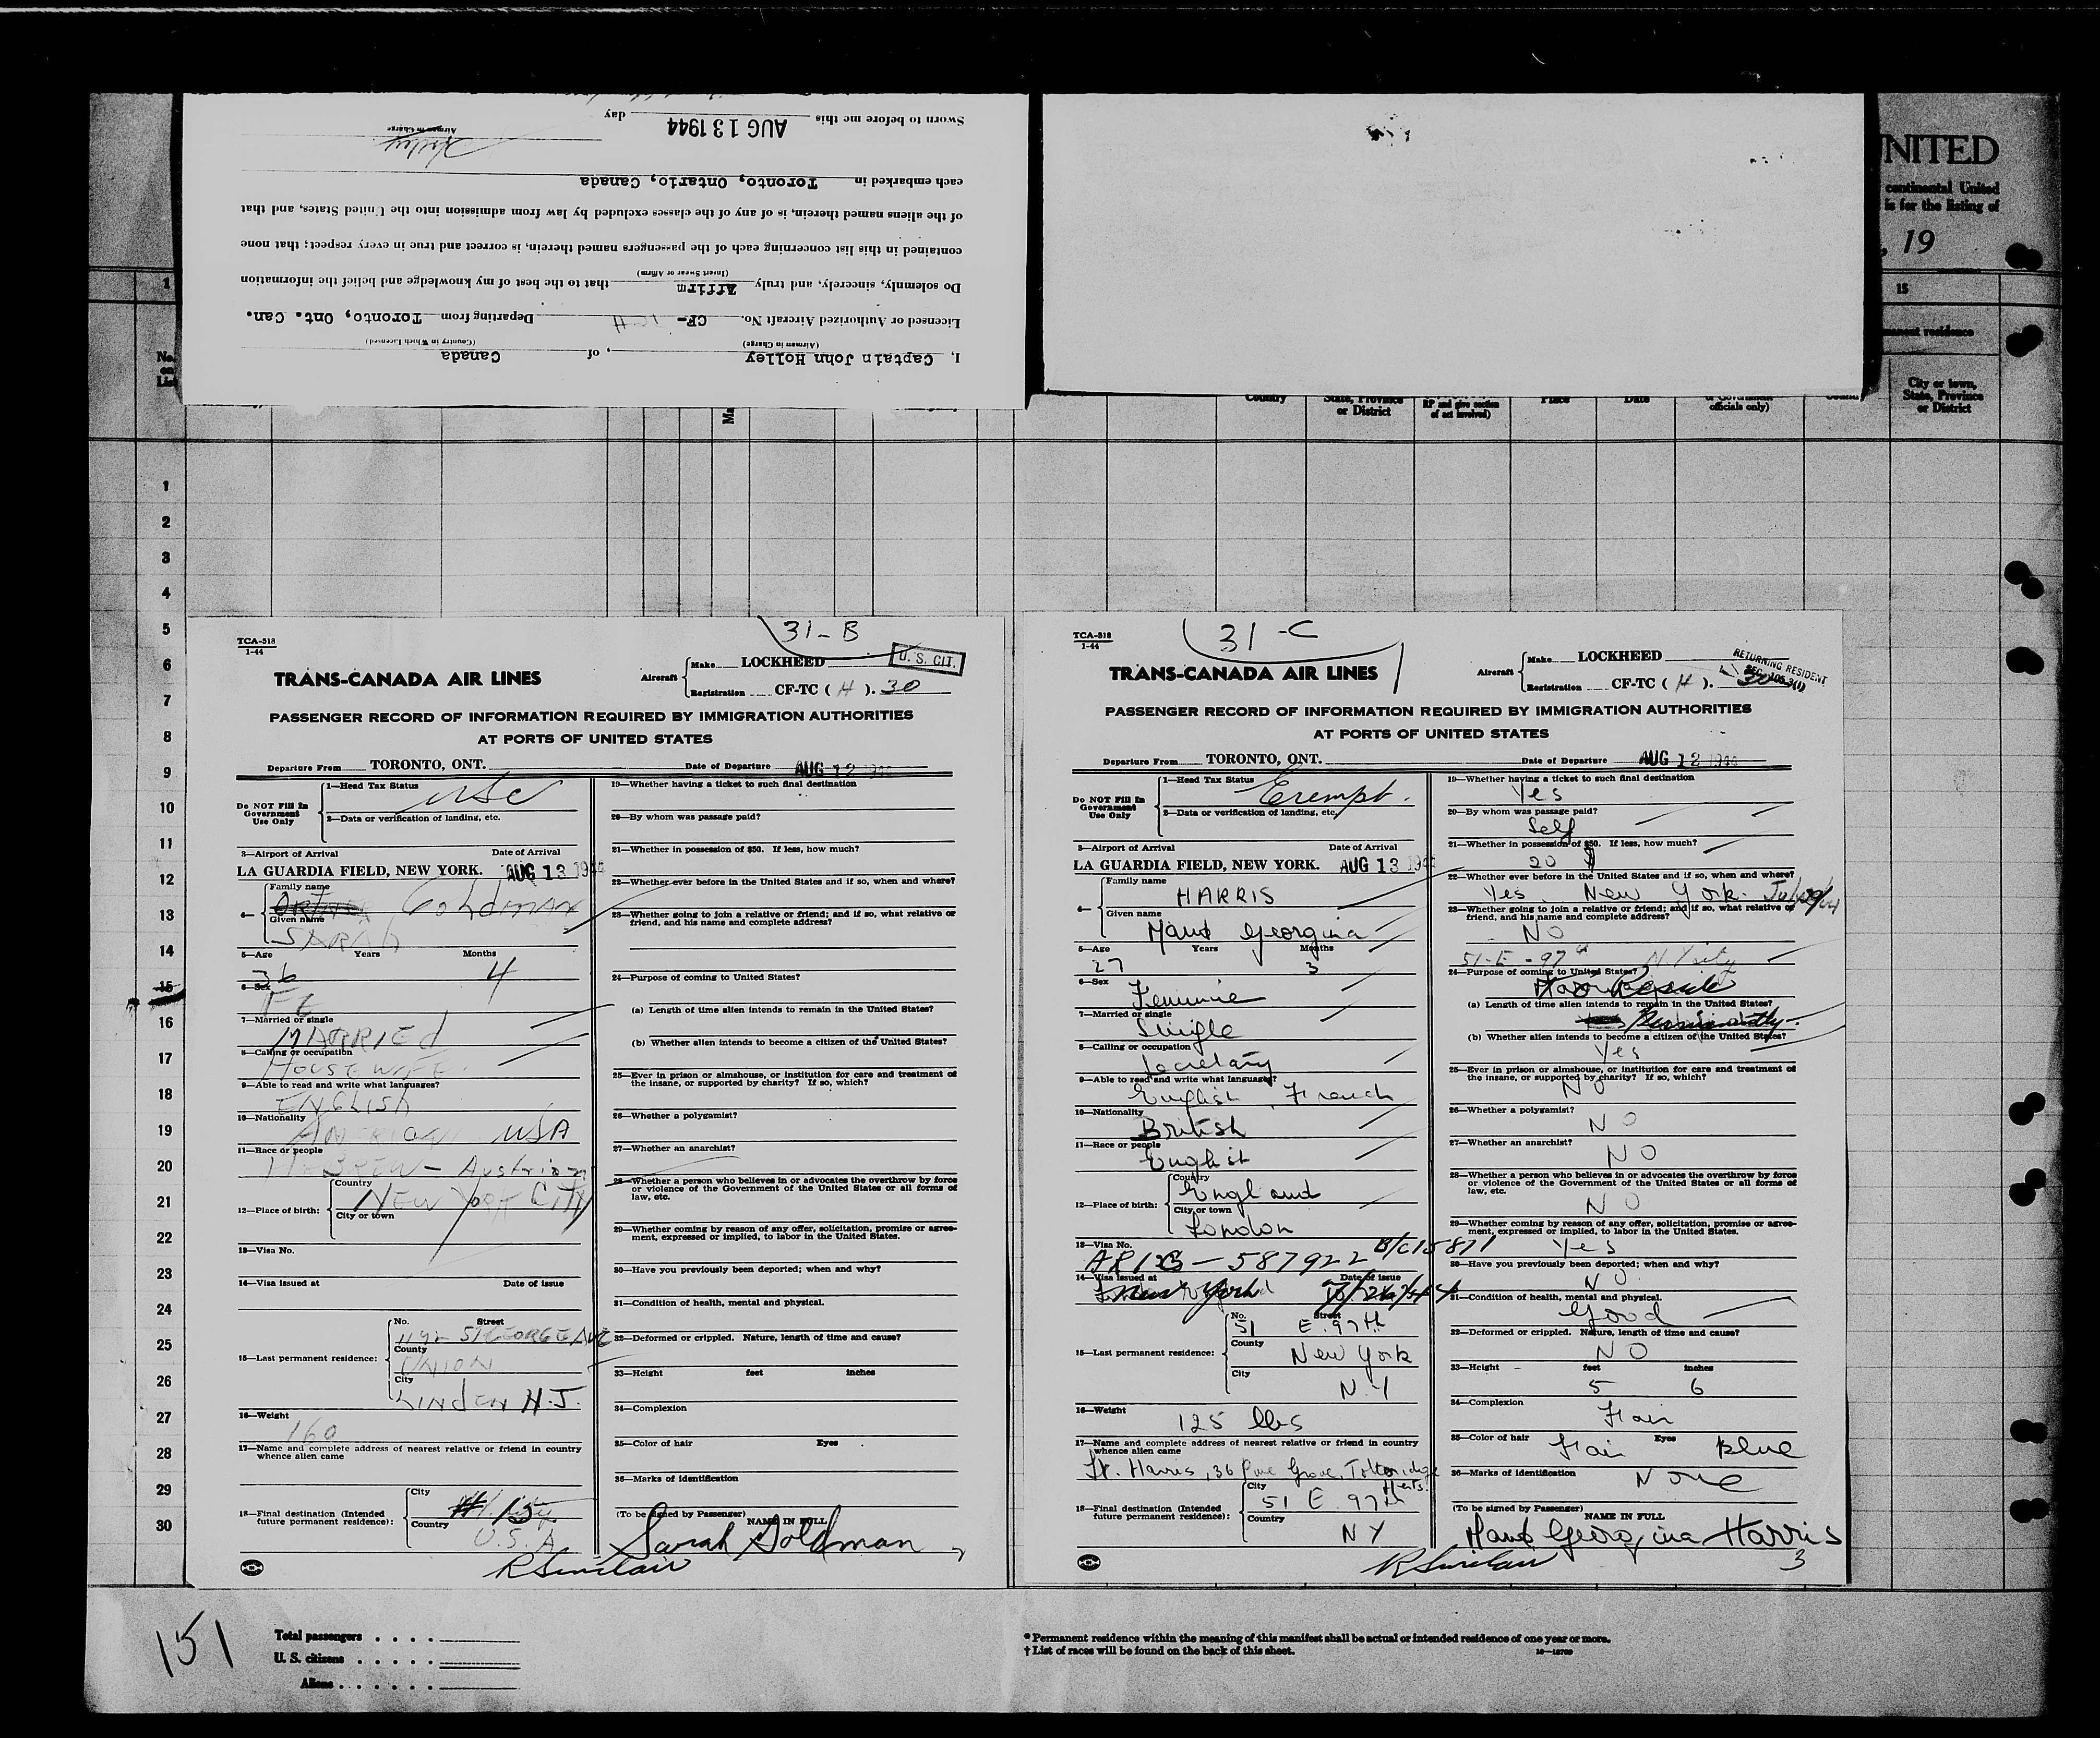 Sworn to before me this AUG 13 1944 day
Airman in Charge
each embarked in Toronto, Ontario, Canada
of the aliens named therein, is of any of the classes excluded by law from admission into the United States, and that
contained in this list concerning each of the passengers named therein, is correct and true in every respect; that none
(Insert Swear or Affirm)
Do solemnly, sincerely, and truly Affirm that to the best of my knowledge and belief the information
Licensed or Authorized Aircraft No. CF- H Departing from Toronto, Ont. Can.
(Airman in Charge) (Country in Which Licensed)
I, Captain John Holley, of Canada
NITED
continental United
is for the listing of
, 19
15
permanent residence
City or town,
State, Province
or District
Country
State, Province
or District
RP and give section
of act involved)
Place
Date
officials only)
1
No.
on
List
1
2
3
4
5
6
7
8
9
10
11
12
13
14
15
16
17
18
19
20
21
22
23
24
25
26
27
28
29
30
31-B
TCA-518
1-44
TRANS-CANADA AIR LINES
Aircraft
Make LOCKHEED
U. S. CIT.
Registration CF-TC ( H ). 30
PASSENGER RECORD OF INFORMATION REQUIRED BY IMMIGRATION AUTHORITIES
AT PORTS OF UNITED STATES
Departure From TORONTO, ONT. Date of Departure AUG 12 1944
Do NOT Fill In
Government
Use Only
1—Head Tax Status
USC
2—Data or verification of landing, etc.
3—Airport of Arrival Date of Arrival
LA GUARDIA FIELD, NEW YORK. AUG 13 1944
4—
Family name
Goldman
Given name
SARAH
5—Age Years Months
36 4
6—Sex
FE
7—Married or single
MARRIED
8—Calling or occupation
HOUSEWIFE
9—Able to read and write what languages?
ENGLISH
10—Nationality
AMERICAN USA
11—Race or people
HEBREW - Austrian
12—Place of birth:
Country
NEW YORK CITY
City or town
13—Visa No.
14—Visa issued at Date of issue
15—Last permanent residence:
No. Street
ST GEORGE AVE
County
UNION
City
LINDEN N.J.
16—Weight
160
17—Name and complete address of nearest relative or friend in country
whence alien came
18—Final destination (Intended
future permanent residence):
City
Country
U.S.A
19—Whether having a ticket to such final destination
20—By whom was passage paid?
21—Whether in possession of $50. If less, how much?
22—Whether ever before in the United States and if so, when and where?
23—Whether going to join a relative or friend; and if so, what relative or
friend, and his name and complete address?
24—Purpose of coming to United States?
(a) Length of time alien intends to remain in the United States?
(b) Whether alien intends to become a citizen of the United States?
25—Ever in prison or almshouse, or institution for care and treatment of
the insane, or supported by charity? If so, which?
26—Whether a polygamist?
27—Whether an anarchist?
28—Whether a person who believes in or advocates the overthrow by force
or violence of the Government of the United States or all forms of
law, etc.
29—Whether coming by reason of any offer, solicitation, promise or agree-
ment, expressed or implied, to labor in the United States.
30—Have you previously been deported; when and why?
31—Condition of health, mental and physical.
32—Deformed or crippled. Nature, length of time and cause?
33—Height feet inches
34—Complexion
35—Color of hair Eyes
36—Marks of identification
(To be signed by Passenger)
NAME IN FULL
Sarah Goldman
R Sinclair
31-C
TCA-518
1-44
TRANS-CANADA AIR LINES
Aircraft
Make LOCKHEED
RETURNING RESIDENT
Registration CF-TC ( H ). 30
PASSENGER RECORD OF INFORMATION REQUIRED BY IMMIGRATION AUTHORITIES
AT PORTS OF UNITED STATES
Departure From TORONTO, ONT. Date of Departure AUG 12 1944
Do NOT Fill In
Government
Use Only
1—Head Tax Status
Exempt.
2—Data or verification of landing, etc.
3—Airport of Arrival Date of Arrival
LA GUARDIA FIELD, NEW YORK. AUG 13 1944
4—
Family name
HARRIS
Given name
Maud Georgina
5—Age Years Months
27 3
6—Sex
Feminine
7—Married or single
Single
8—Calling or occupation
Secretary
9—Able to read and write what language?
English, French
10—Nationality
British
11—Race or people
English
12—Place of birth:
Country
England
City or town
London
13—Visa No.
587922 B/C15871
14—Visa issued at Date of issue
New York
15—Last permanent residence:
No. Street
51 E. 97th
County
New York
City
N.Y
16—Weight
125 lbs
17—Name and complete address of nearest relative or friend in country
whence alien came
Harris, 36 Pine Grove, Totteridge
Herts.
18—Final destination (Intended
future permanent residence):
City
51 E. 97th
Country
NY
19—Whether having a ticket to such final destination
Yes
20—By whom was passage paid?
Self
21—Whether in possession of $50. If less, how much?
20 $
22—Whether ever before in the United States and if so, when and where?
Yes New York.
23—Whether going to join a relative or friend; and if so, what relative or
friend, and his name and complete address?
NO
51-E-97th N.Y city
24—Purpose of coming to United States?
Reside
(a) Length of time alien intends to remain in the United States?
Permanently.
(b) Whether alien intends to become a citizen of the United States?
Yes
25—Ever in prison or almshouse, or institution for care and treatment of
the insane, or supported by charity? If so, which?
NO
26—Whether a polygamist?
NO
27—Whether an anarchist?
NO
28—Whether a person who believes in or advocates the overthrow by force
or violence of the Government of the United States or all forms of
law, etc.
NO
29—Whether coming by reason of any offer, solicitation, promise or agree-
ment, expressed or implied, to labor in the United States.
Yes
30—Have you previously been deported; when and why?
NO
31—Condition of health, mental and physical.
Good
32—Deformed or crippled. Nature, length of time and cause?
NO
33—Height feet inches
5 6
34—Complexion
Fair
35—Color of hair Eyes
Fair Blue
36—Marks of identification
None
(To be signed by Passenger)
NAME IN FULL
Maud Georgina Harris
R Sinclair
3
151
Total passengers
U. S. citizens
Aliens
* Permanent residence within the meaning of this manifest shall be actual or intended residence of one year or more.
† List of races will be found on the back of this sheet.